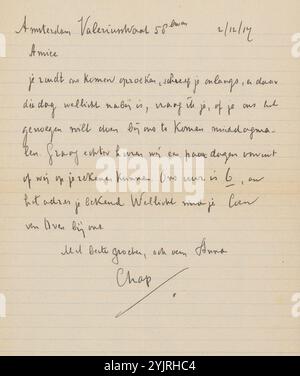 Amsterdam Valeriusstraat 58 huis 2/12/17
Amice
je zoudt ons komen opzoeken, schreef je onlangs, en daar
die dag wellicht nabij is, vraag ik je, of je ons het
genoegen wilt doen bij ons te komen middagma-
len. Graag echter hooren wij een paar dagen vooruit
of wij op je rekenen kunnen. Ons uur is 6, en
het adres je bekend. Wellicht vind je Coen
van Oven bij ons.
Met beste groeten, ook van Anna
Chap
alamy
Image ID: 2YJRHC4
www.alamy.com